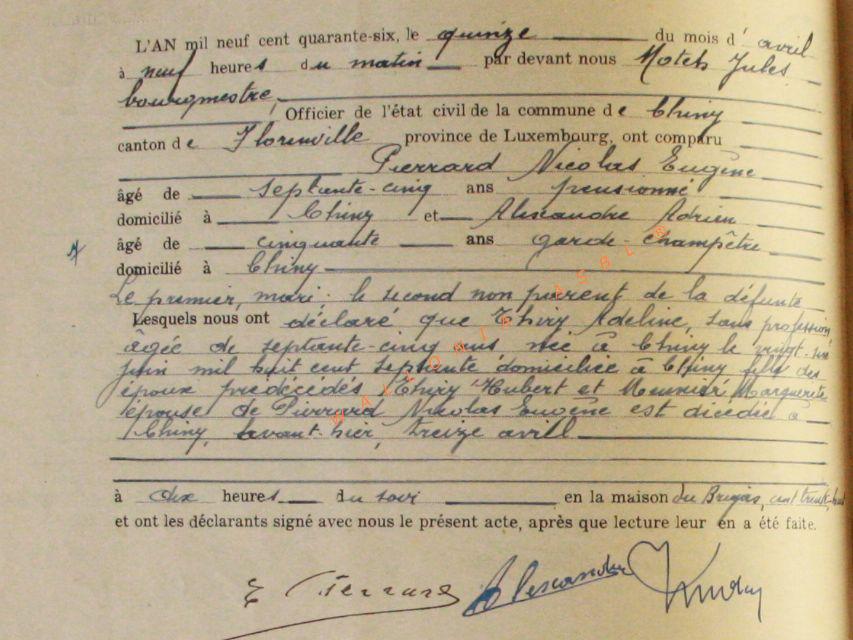 L'AN mil neuf cent quarante-six, le quinze du mois d' avril
à neuf heures du matin par devant nous Jules
bourgmestre, Officier de l'état civil de la commune de Chiny
canton de Florenville province de Luxembourg, ont comparu
Pierrard Nicolas Eugène
âgé de septante-cinq ans pensionné
domicilié à Chiny et Alexandre Adrien
âgé de cinquante ans garde-champêtre
domicilié à Chiny
Le premier, mari; le second non parent de la défunte
Lesquels nous ont déclaré que Thiry Adeline, sans profession
âgée de septante-cinq ans née à Chiny le vingt-six
juin mil huit cent septante domiciliée à Chiny fille des
époux prédécédés Thiry Hubert et Meunier Marguerite
épouse de Pierrard Nicolas Eugène est décédée à
Chiny, avant-hier, treize avril
à dix heures du soir en la maison du
et ont les déclarants signé avec nous le présent acte, après que lecture leur en a été faite.
E Pierrard Alexandre